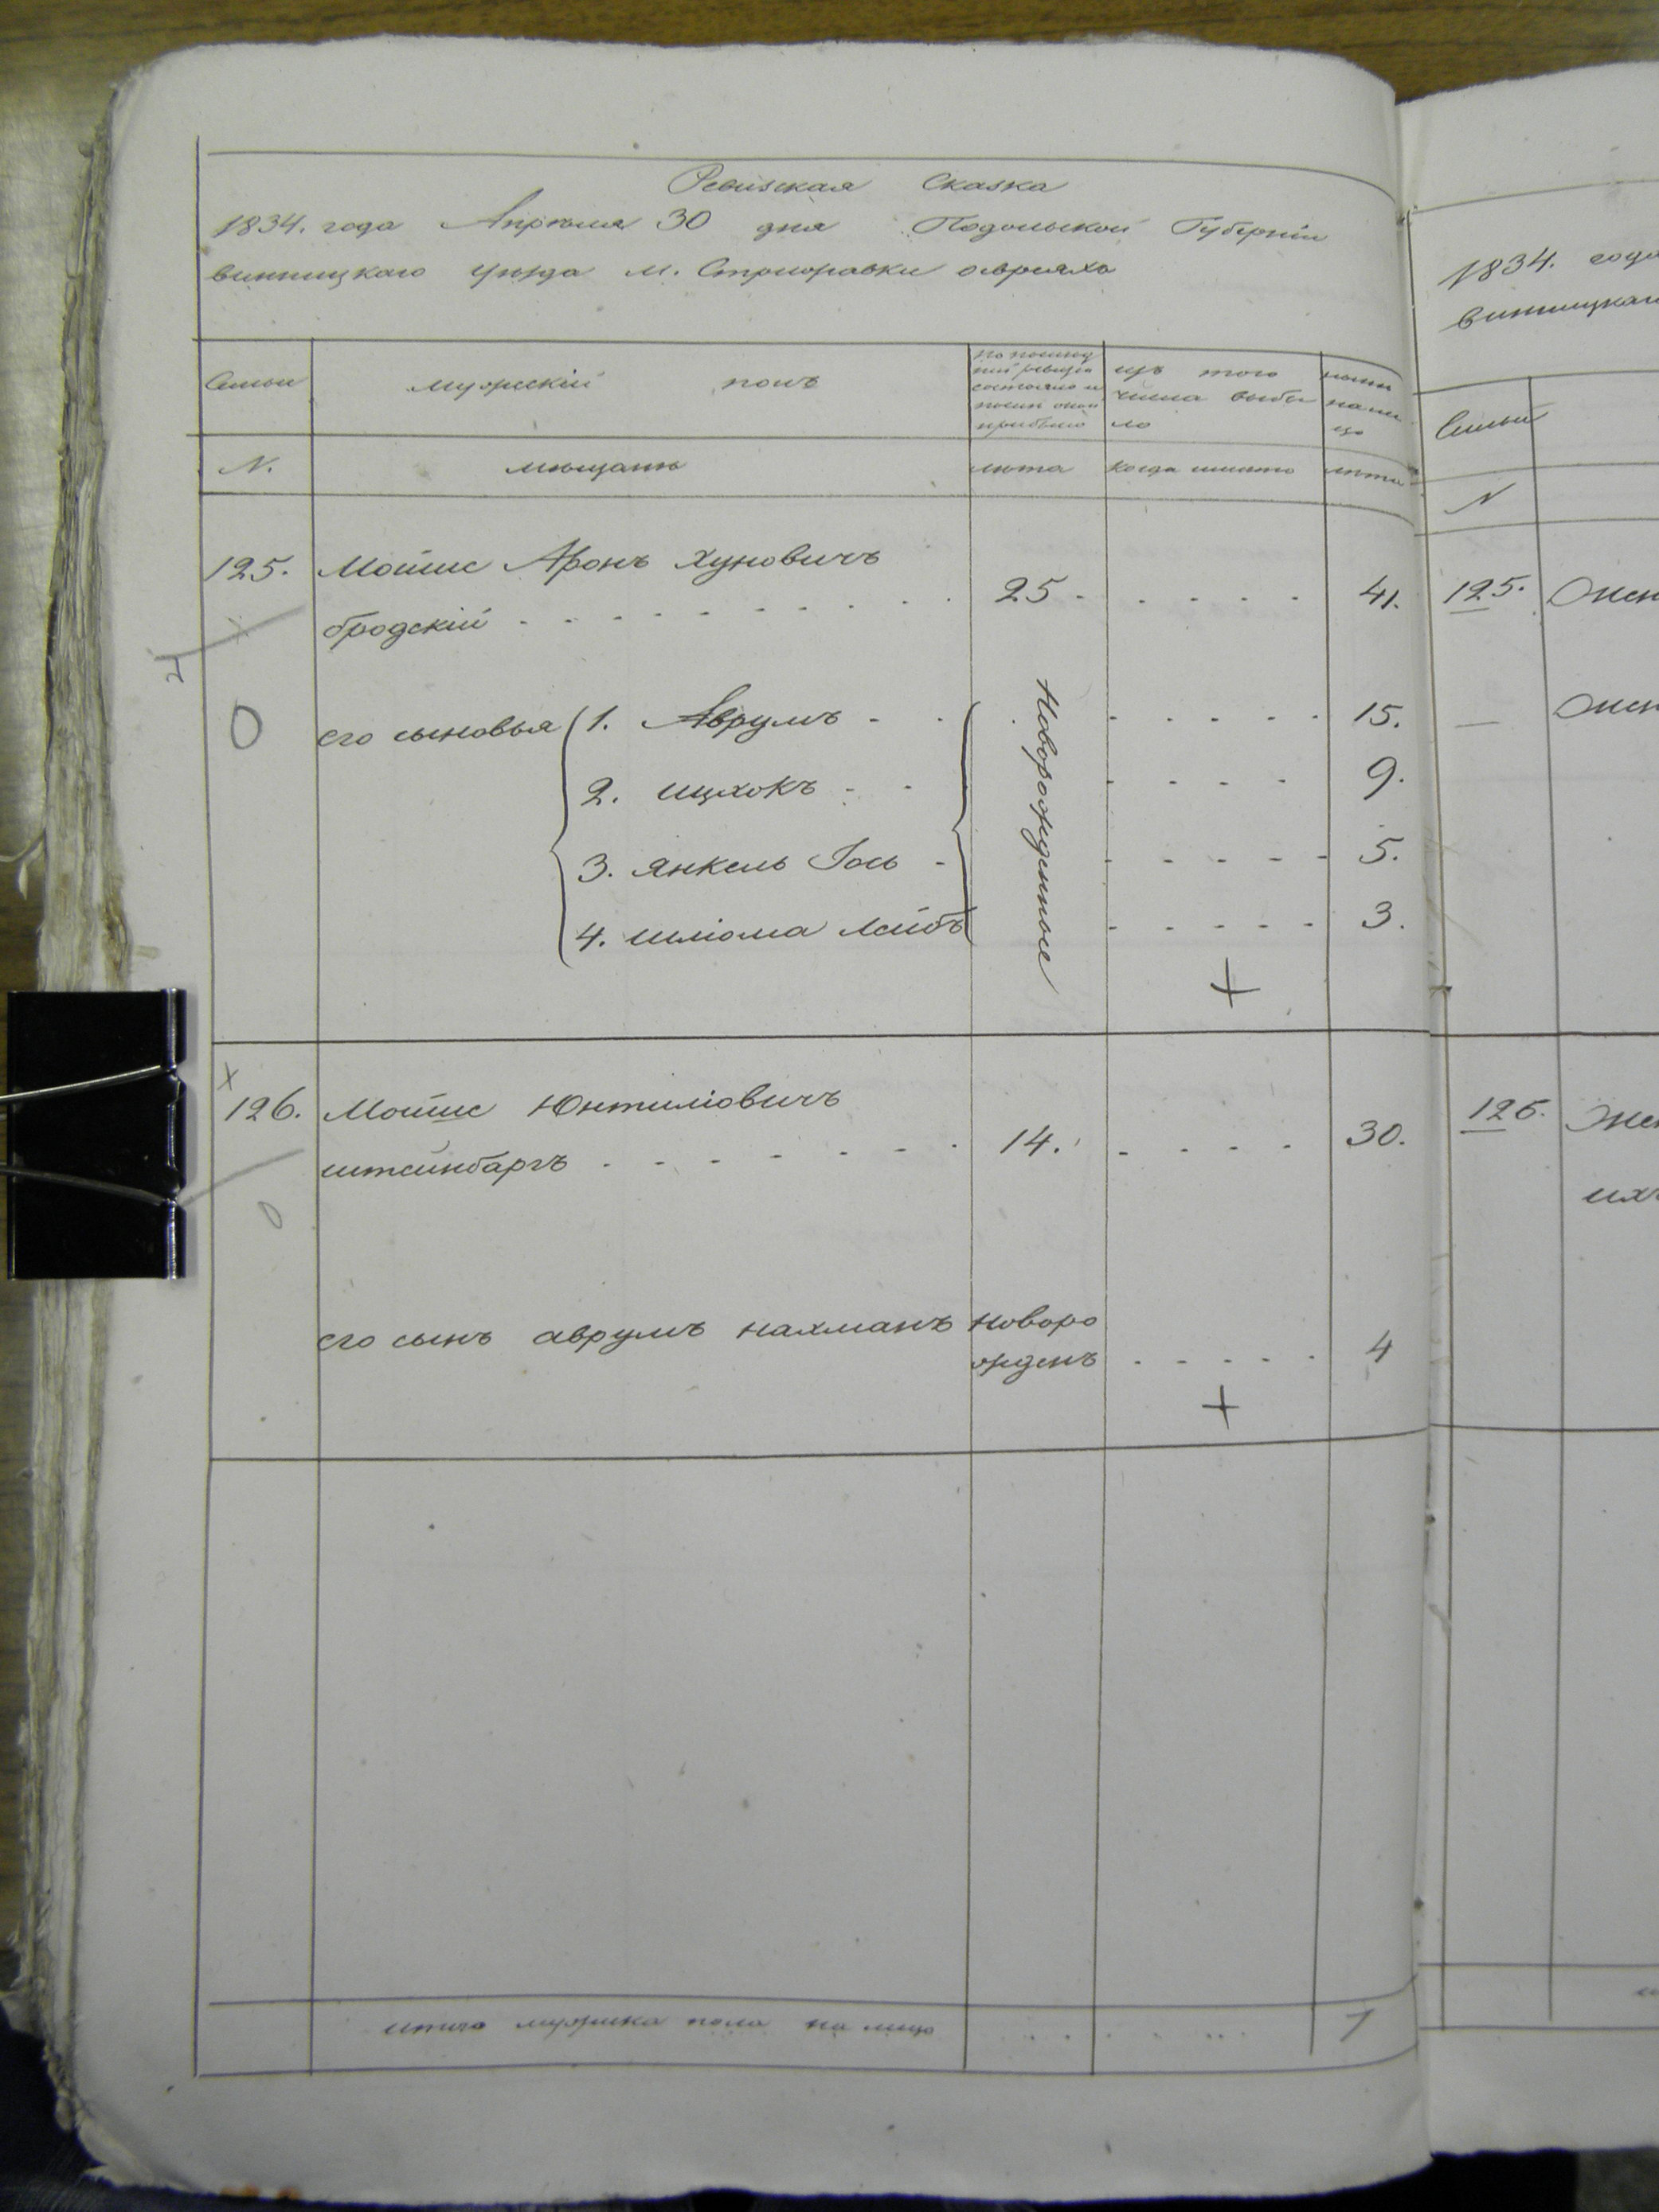 Ревизская Сказка
1834. года Апреля 30 дня Подольской Губернiи
винницкаго уезда м. Стрижавки о евреяхъ
Семьи
мужескiй полъ
по послед
ней ревизiи
состояло и
после оной
прибыло
изъ того
числа выбы
ло
ныне
на ли
цо
N.
мещане
лета
когда имянно
лета
125. Мошко Аронъ Хуновичъ
бродскiй . . . . . . . . 25 - . . . . . 41.
его сыновья
1. Аврумъ - . - - - - - 15.
2. ицхокъ - - - - - - 9.
3. янкель Iось - - - - - - 5.
4. шлiома лейбъ - - - - - 3.
Новорожденные
+
x
126. Мошко Юнтилiовичъ
штейнбаргъ . - - - - - . 14. . - - - 30.
0
его сынъ аврумъ нахманъ новоро
жденъ . - - - . 4
+
итого мужеска пола на лицо . . . . . . . 7
1834. года
винницкаго
Семьи
N
125. Жен
126. Жен
ихъ